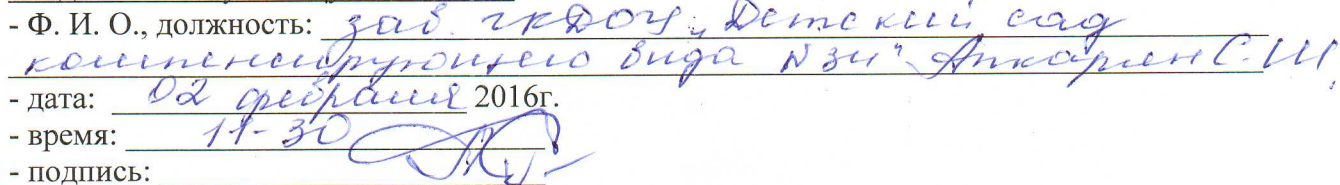 - Ф. И. О., должность: зав. ГКДОУ „Детский сад
компенсирующего вида №31" Апкарян С.Ш.
- дата: 02 февраля 2016г.
- время: 11-30
- подпись: